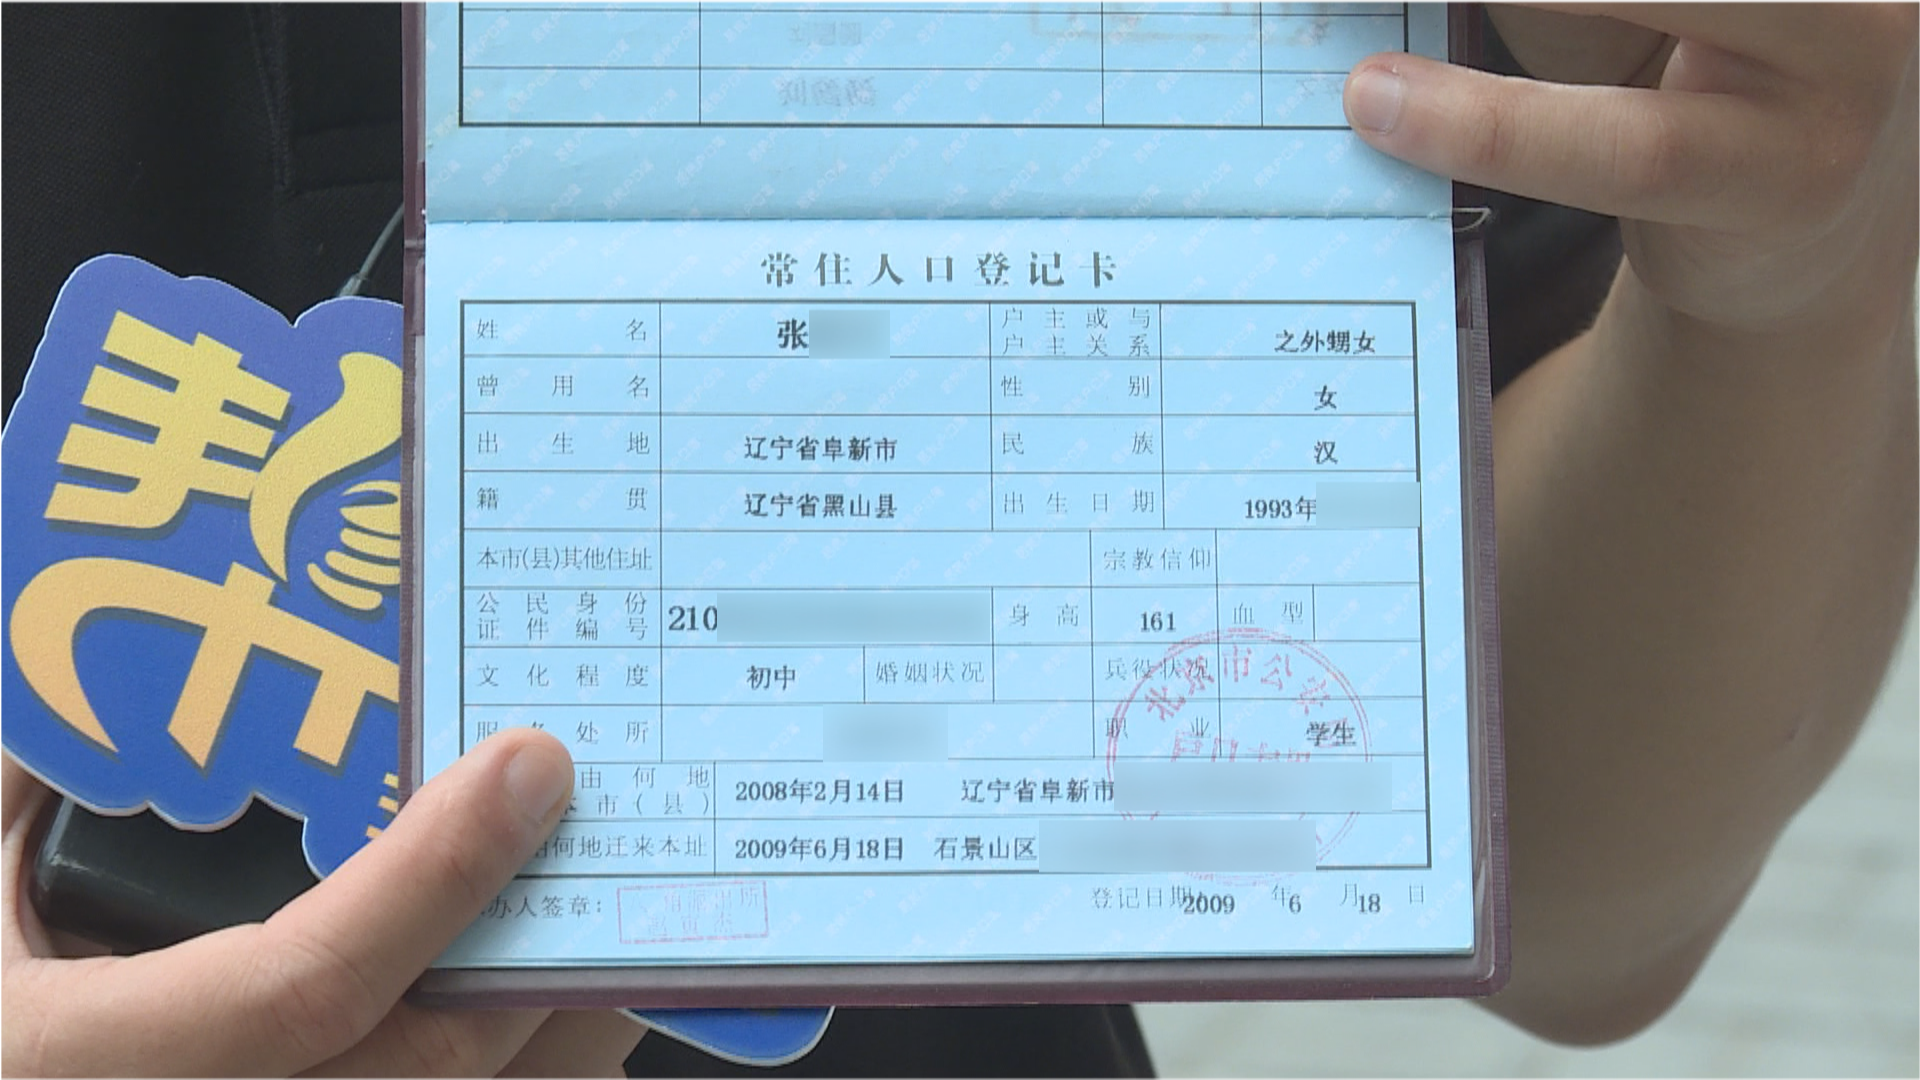 常住人口登记卡
姓名 张 户主或与户主关系 之外甥女
曾用名 性别 女
出生地 辽宁省阜新市 民族 汉
籍贯 辽宁省黑山县 出生日期 1993年
本市(县)其他住址 宗教信仰
公民身份证件编号 210 身高 161 血型
文化程度 初中 婚姻状况 兵役状况
服务处所 职业 学生
由何地 本市(县) 2008年2月14日 辽宁省阜新市
何地迁来本址 2009年6月18日 石景山区
北京市公安局
办人签章: 登记日期: 2009年6月18日